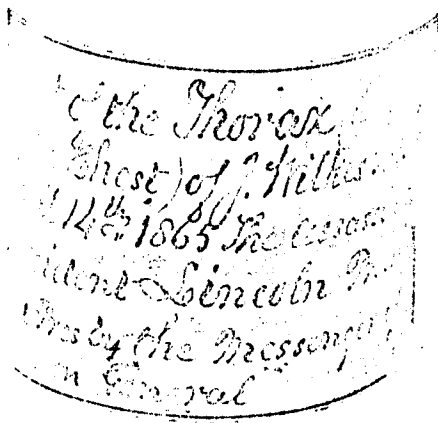 the Thorax
Chest) of J. Wilkes
14th 1865 The assass
ident Lincoln
by the Messenger
n General"